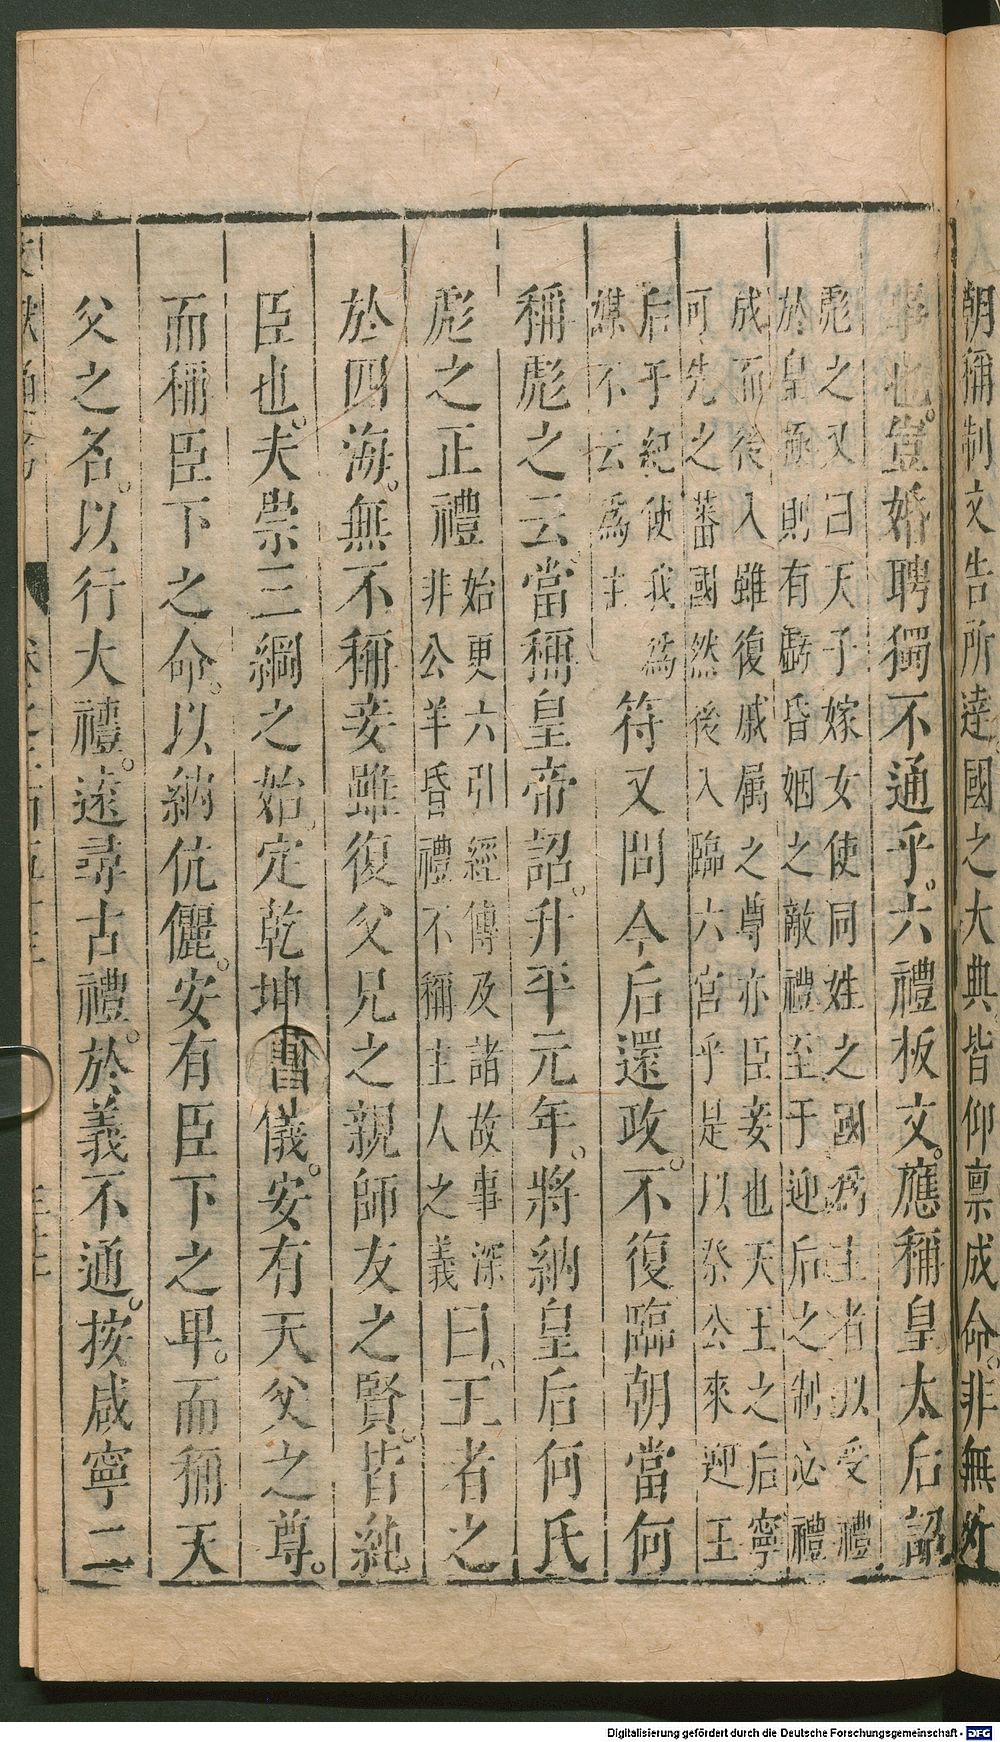 朝稱制文告所達國之大典皆仰稟成命。非無外
事也。豈婚聘獨不通乎。六禮板文。應稱皇太后詔
彪之又曰天子嫁女使同姓之國爲主者以受禮
於皇極則有虧昏姻之敵禮至于迎后之制必禮
成而後入雖復戚属之尊亦臣妾也天王之后寧
可先之蕃國然後入臨六宮乎是以祭公來迎王
后于紀使我爲
媒不云爲主
符又問今后還政。不復臨朝當何
稱彪之云。當稱皇帝詔。升平元年。將納皇后何氏
彪之正禮
始更六引經傳及諸故事深
非公羊昏禮不稱主人之義
曰。王者之
於四海。無不稱妾雖復父兄之親師友之賢。皆純
臣也。夫崇三綱之始。定乾坤之儀。安有天父之尊。
而稱臣下之命。以納伉儷。安有臣下之卑。而稱天
父之名。以行大禮。遠尋古禮。於義不通。按咸寧二
Digitalisierung gefördert durch die Deutsche Forschungsgemeinschaft - DFG